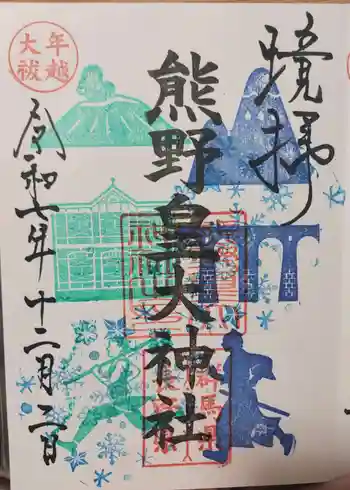 境拝
熊野皇大神社
年越
大祓
令和七年十二月三日
群馬県